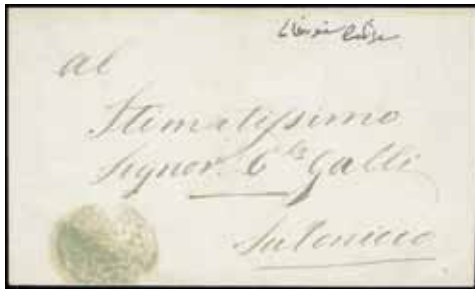 al
Stimatissimo
Signor C.<sup>lo</sup> Galli
Salonicco